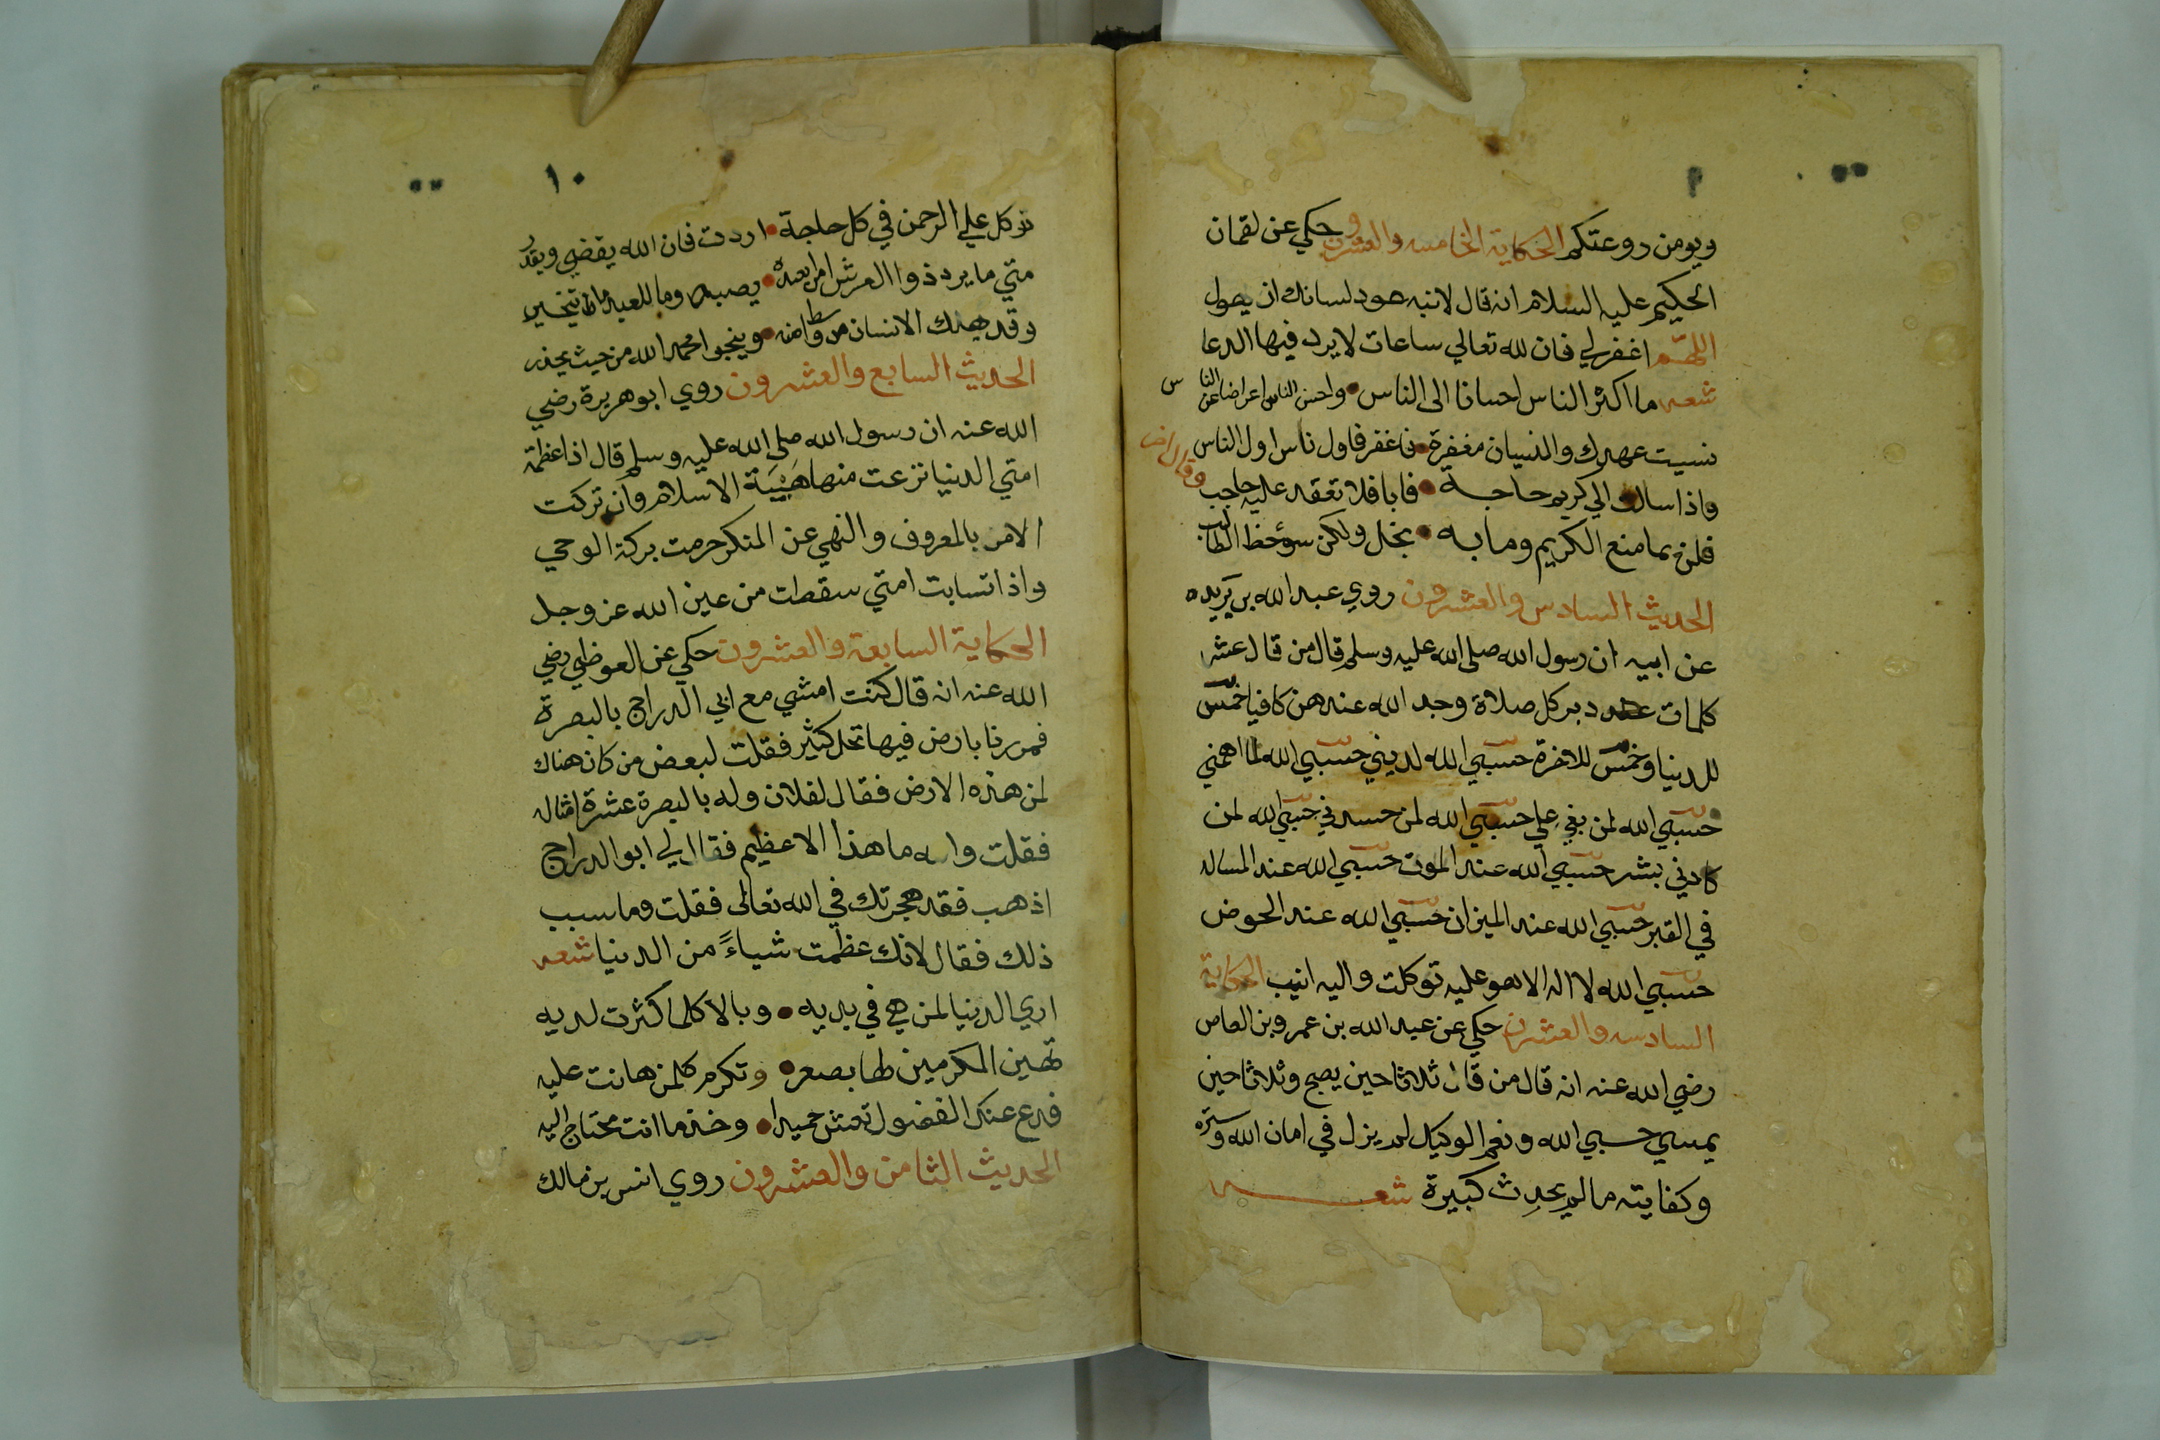 ويومن روعتكم الحكاية الخامسه والعشرون حكي عن لقمان
الحكيم عليه السلام انه قال لابنه عود لسانك ان يقول
اللهم اغفرلي فان لله تعالي ساعات لا يرد فيها الدعا
شعر ما اكثر الناس احسانا الى الناس • واحسن الناس اعراضا عن الناس
نسيت عهدك والنسيان مغفرة • فاغفر فاول ناس اول الناس
وقال
واذا سالت الي كريم حاجة • فابا فلا تعقد عليه حاجب
فلربما منع الكريم وما به • بخل ولكن سؤحظ الطالب
الحديث السادس والعشرون روي عبد الله بن بريده
عن ابيه ان رسول الله صلى الله عليه وسلم قال من قال عشر
كلمات دبر كل صلاة وجد الله عندهن كافيا خمس
للدنيا وخمس للاخرة حسبي الله لديني حسبي الله لما اهمني
حسبي الله لمن بغي علي حسبي الله لمن حسدني حسبي الله لمن
كادني بشر حسبي الله عند الموت حسبي الله عند المساله
في القبر حسبي الله عند الميزان حسبي الله عند الحوض
حسبي الله لا اله الا هو عليه توكلت واليه انيب الحكاية
السادسه والعشرون حكي عن عبد الله بن عمرو بن العاص
رضي الله عنه انه قال من قال ثلاثا حين يصبح وثلاثا حين
يمسي حسبي الله ونعم الوكيل لم يزل في امان الله وستره
وكفايته ما لم يحدث كبيرة شعر
١٠
توكل علي الرحمن في كل حاجة • اردت فان الله يقضي ويقدر
متي ما يرد ذوا العرش امرا بعبده • يصبه وما للعبد ما يتخير
وقد يهلك الانسان من وسط امنه • وينجوا بحمد الله من حيث يحذر
الحديث السابع والعشرون روي ابو هريرة رضي
الله عنه ان رسول الله صلي الله عليه وسلم قال اذا عظمة
امتي الدنيا نزعت منها هيبة الاسلام وان تركت
الامر بالمعروف والنهي عن المنكر حرمت بركة الوحي
واذا تسابت امتي سقطت من عين الله عز وجل
الحكاية السابعة والعشرون حكي عن العوضي رضي
الله عنه انه قال كنت امشي مع ابي الدراج بالبصرة
فمررنا بارض فيها نخل كثير فقلت لبعض من كان هناك
لمن هذه الارض فقال لفلان وله بالبصرة عشرة امثاله
فقلت والله ما هذا الا عظيم فقال لي ابو الدراج
اذهب فقد هجرتك في الله تعالى فقلت وما سبب
ذلك فقال لانك عظمت شياءً من الدنيا شعر
اري الدنيا لمن هي في يديه • وبالا كلما كثرت لديه
تهين المكرمين لها بصغر • وتكرم كلمن هانت عليه
فدع عنك الفضول تعش حميدا • وخذ ما انت محتاج اليه
الحديث الثامن والعشرون روي انس بن مالك